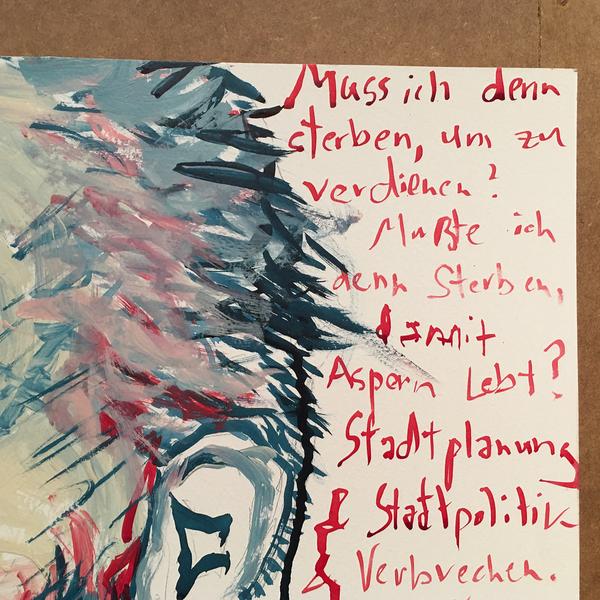 Muss ich denn
sterben, um zu
verdienen?
Mußte ich
denn Sterben,
damit
Aspern Lebt?
Stadtplanung
& Stadtpolitik
Verbrechen.